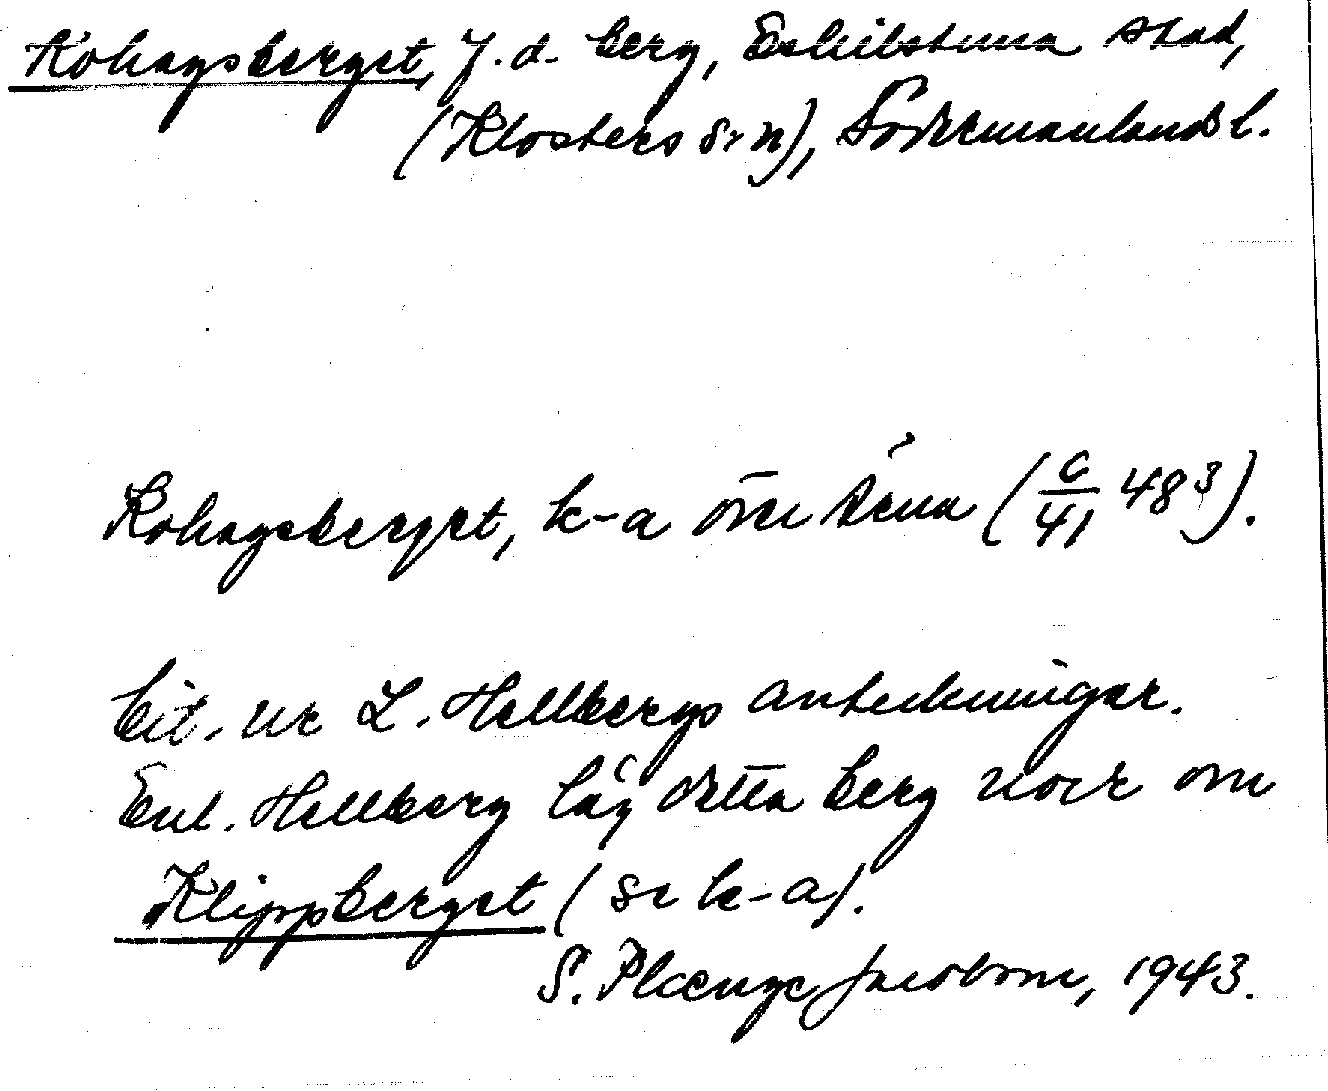 Kohagsberget, f.d. berg, Eskilstuna stad,
(Klosters sn), Södermanlands l.
Kohagsberget, k-a över Åena (C/41 48³).
Cit. ur L. Hellbergs anteckningar.
Enl. Hellberg låg detta berg norr om
Klippberget (se k-a).
S. Plænge Jacobson, 1943.